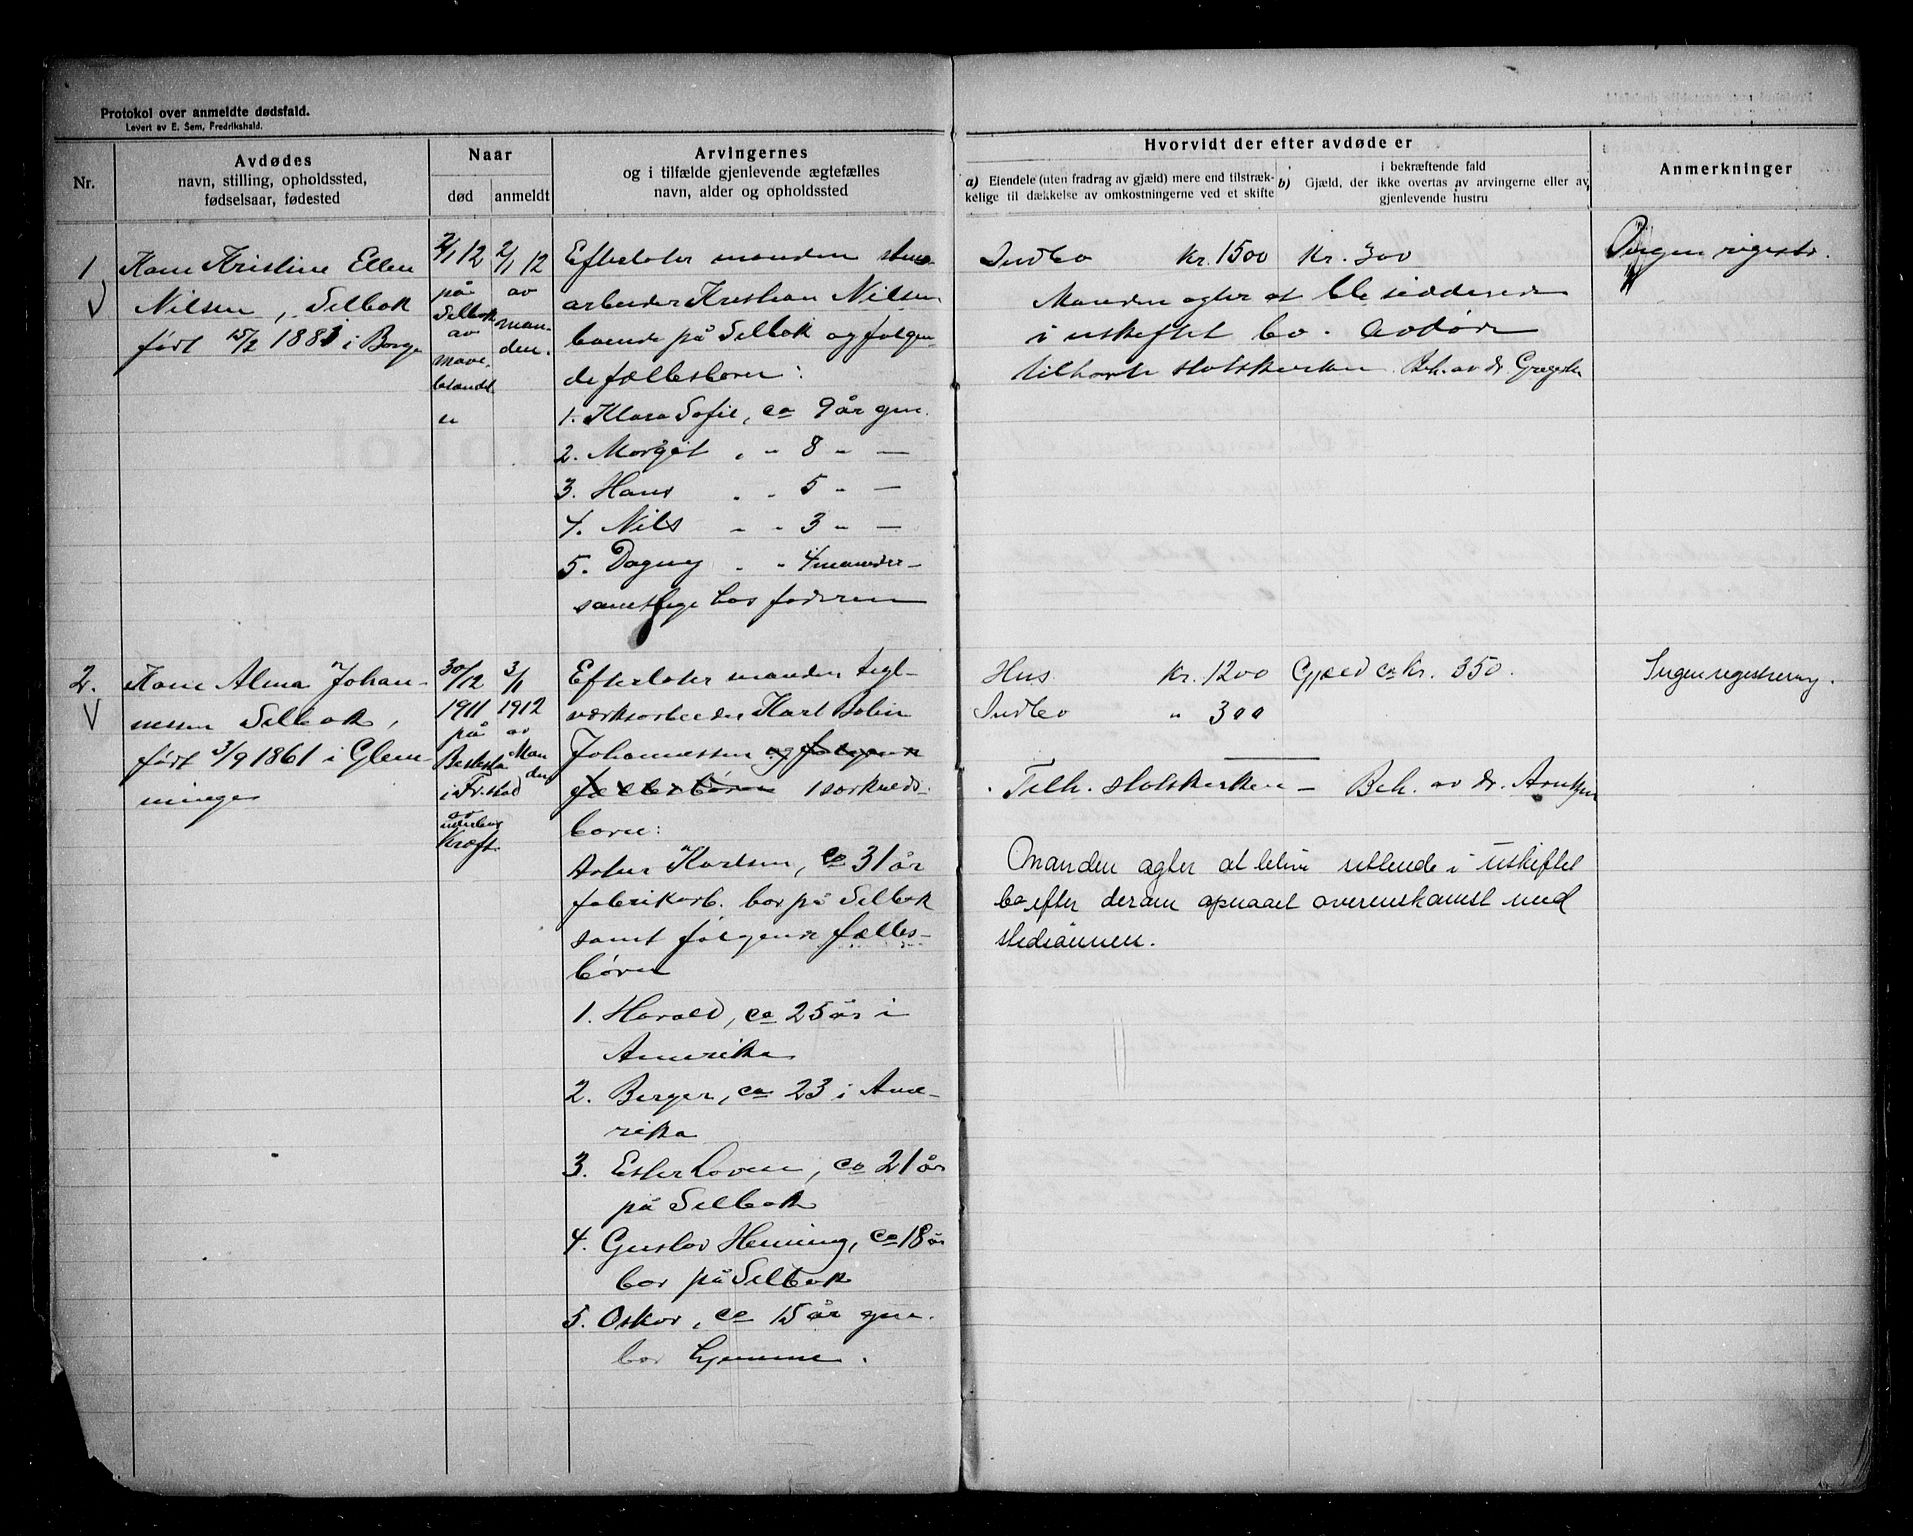 Protokol over anmeldte dødsfald.
Levert av E. Sem, Fredrikshald.
Nr.
Avdødes
navn, stilling, opholdssted,
fødselsaar, fødested
Naar
død
anmeldt
Arvingernes
og i tilfælde gjenlevende ægtefælles
navn, alder og opholdssted
Hvorvidt der efter avdøde er
a) Eiendele (uten fradrag av gjæld) mere end tilstræk-
kelige til dækkelse av omkostningerne ved et skifte
i bekræftende fald
b) Gjæld, der ikke overtas av arvingerne eller av
gjenlevende hustru
Anmerkninger
1
Kone Kristine Ellen
Nilsen, Selbak
født 15/2 1881 i Borge
2/1 12
på
Selbak
av
mave-
2/1 12
av
man-
den.
Efterlater manden
arbeider Kristian Nilsen
boende på Selbak og følgen-
de fællesbørn:
1. Klara Sofie, ca 9 år gm.
2. Margit, " 8 " —
3. Hans " " 5 " —
4. Nils " " 3 " —
5. Dagny " " 4 maaneder —
samtlige hos faderen
Indbo Kr. 1500 Kr. 300
Manden agter at bli siddende
i uskiftet bo. Avdøde
tilhørte statskirken. Beh. av dr
Ingen registr.
2.
Kone Alma Johan-
nessen Selbak,
født 3/9 1861 i Glem-
minge
30/12
1911
på
i Fr.stad
av
kræft.
3/1
1912
av
Man
den
Efterlater manden tegl-
værksarbeider Karl
Johannessen og følgende
fællesbørn 1 særkuld-
barn:
Karlsen, ca 31 år
fabrikarb. bor på Selbak
samt følgende fælles-
børn
1. Harald, ca 25 år i
Amerika
2. Berger, ca 23 i Ame-
rika
3. Ester Lovise, ca 21 år
på Selbak
4. Gustav Henning, ca 18 år
bor på Selbak
5. Oskar, ca 15 år gm.
bor hjemme.
Hus Kr. 1200 Gjæld ca Kr. 350.
Indbo " 300
Tilh. statskirken — Beh. av dr.
Manden agter at blive sittende i uskiftet
bo efter derom opnaaet overenskomst med
stedsønnen.
Ingen registrering.